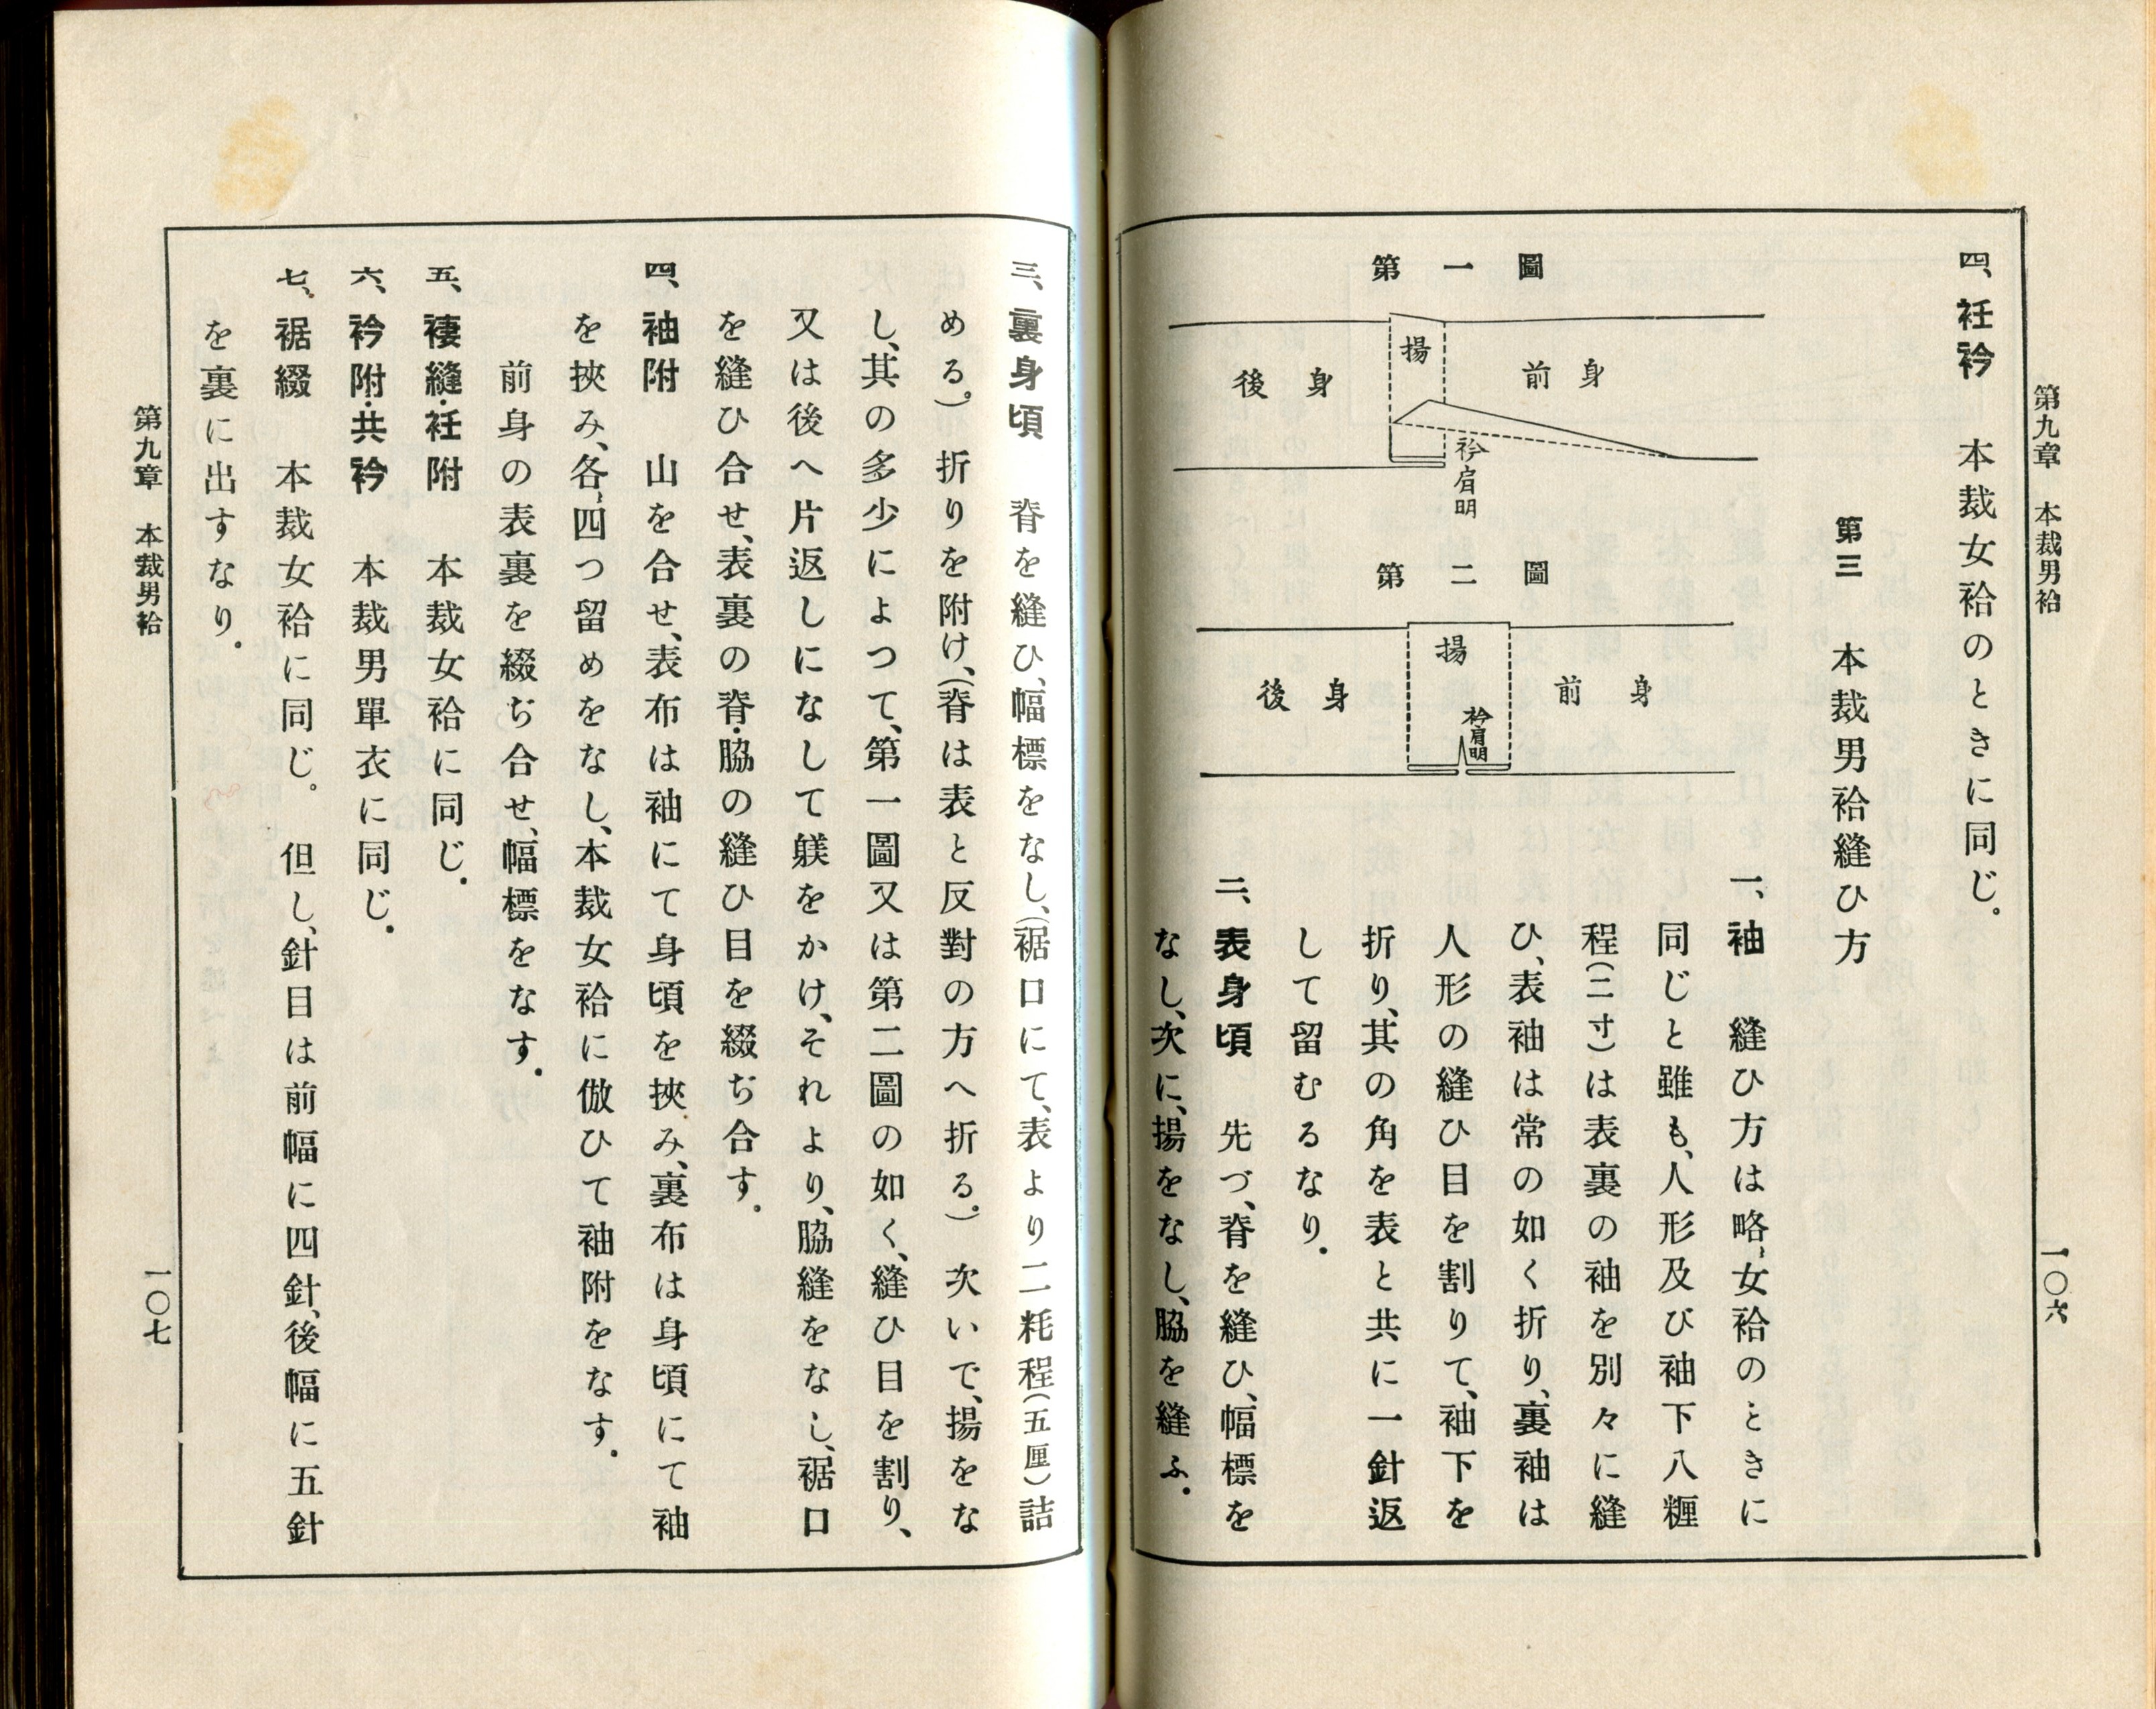 第九章　本裁男袷
一〇六
四、衽衿　本裁女袷のときに同じ。
第三　本裁男袷縫ひ方
第一圖
後身
揚
前身
衿肩明
第二圖
後身
揚
前身
衿肩明
一、袖　縫ひ方は略、女袷のときに
同じと雖も、人形及び袖下八糎
程（二寸）は表裏の袖を別々に縫
ひ、表袖は常の如く折り、裏袖は
人形の縫ひ目を割りて、袖下を
折り、其の角を表と共に一針返
して留むるなり。
二、表身頃　先づ、脊を縫ひ、幅標を
なし、次に、揚をなし、脇を縫ふ。
三、裏身頃　脊を縫ひ、幅標をなし、（裾口にて、表より二粍程（五厘）詰
める。）折りを附け、（脊は表と反對の方へ折る。）次いで、揚をな
し、其の多少によつて、第一圖又は第二圖の如く、縫ひ目を割り、
又は後へ片返しになして躾をかけ、それより、脇縫をなし、裾口
を縫ひ合せ、表裏の脊・脇の縫ひ目を綴ぢ合す。
四、袖附　山を合せ、表布は袖にて身頃を挾み、裏布は身頃にて袖
を挾み、各、四つ留めをなし、本裁女袷に倣ひて袖附をなす。
前身の表裏を綴ぢ合せ、幅標をなす。
五、褄縫・衽附　本裁女袷に同じ。
六、衿附・共衿　本裁男單衣に同じ。
七、裾綴　本裁女袷に同じ。但し、針目は前幅に四針、後幅に五針
を裏に出すなり。
第九章　本裁男袷
一〇七